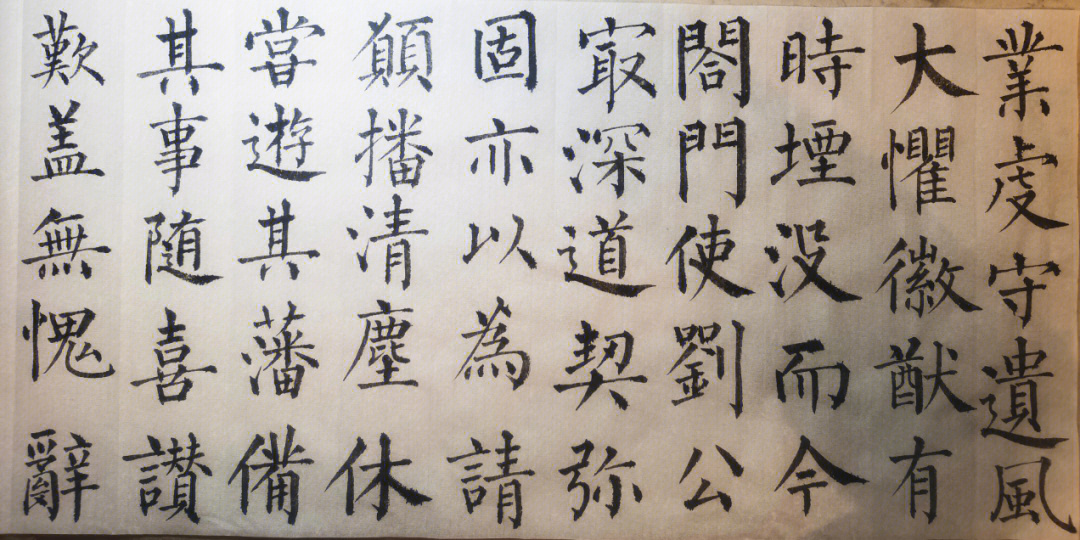 業虔守遺風
大懼徽猷有
時堙没而今
閤門使劉公
㝡深道契弥
固亦以為請
願播清塵休
嘗遊其藩備
其事随喜讃
歎盖無愧辭